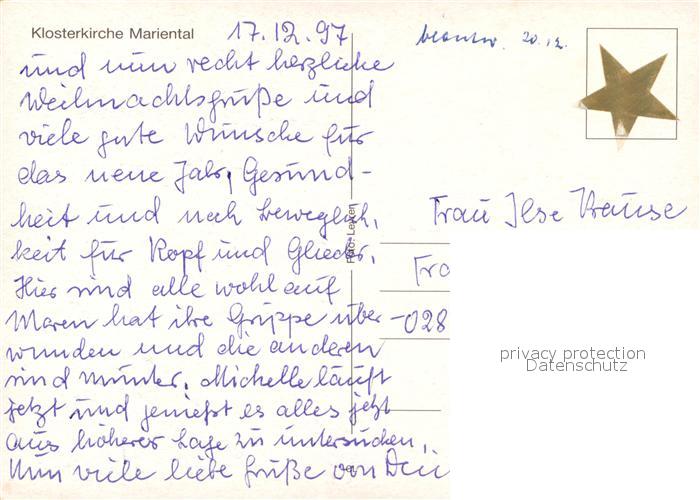 Klosterkirche Mariental 17.12.97
und nun recht herzliche
Weihnachtsgrüße und
viele gute Wünsche für
das neue Jahr, Gesund-
heit und noch Beweglich-
keit für Kopf und Glieder.
Hier sind alle wohl auf
Maren hat ihre Grippe über-
wunden und die anderen
sind munter. Michelle läuft
jetzt und genießt es alles jetzt
aus höherer Lage zu untersuchen.
Nun viele liebe Grüße von Dei
beantw. 20.12.
Foto:
Frau Ilse Krause
Fra
028
privacy protection
Datenschutz